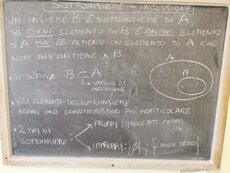 SOTTOINSIEME - INCLUSIONE
UN INSIEME B È SOTTOINSIEME DI A
SE OGNI ELEMENTO DI B È ANCHE ELEMENTO
DI A MA C'È ALMENO UN ELEMENTO DI A CHE
NON APPARTIENE A B.
A
B
• SI SCRIVE B⊂A
SIMBOLO DI
INCLUSIONE
• GLI ELEMENTI DEL SOTTOINSIEME
HANNO UNA CARATTERISTICA PIÙ PARTICOLARE
• 2 TIPI DI
SOTTOINSIEME:
PROPRI:
IMPROPRI: {∅}, {INSIEME STESSO}